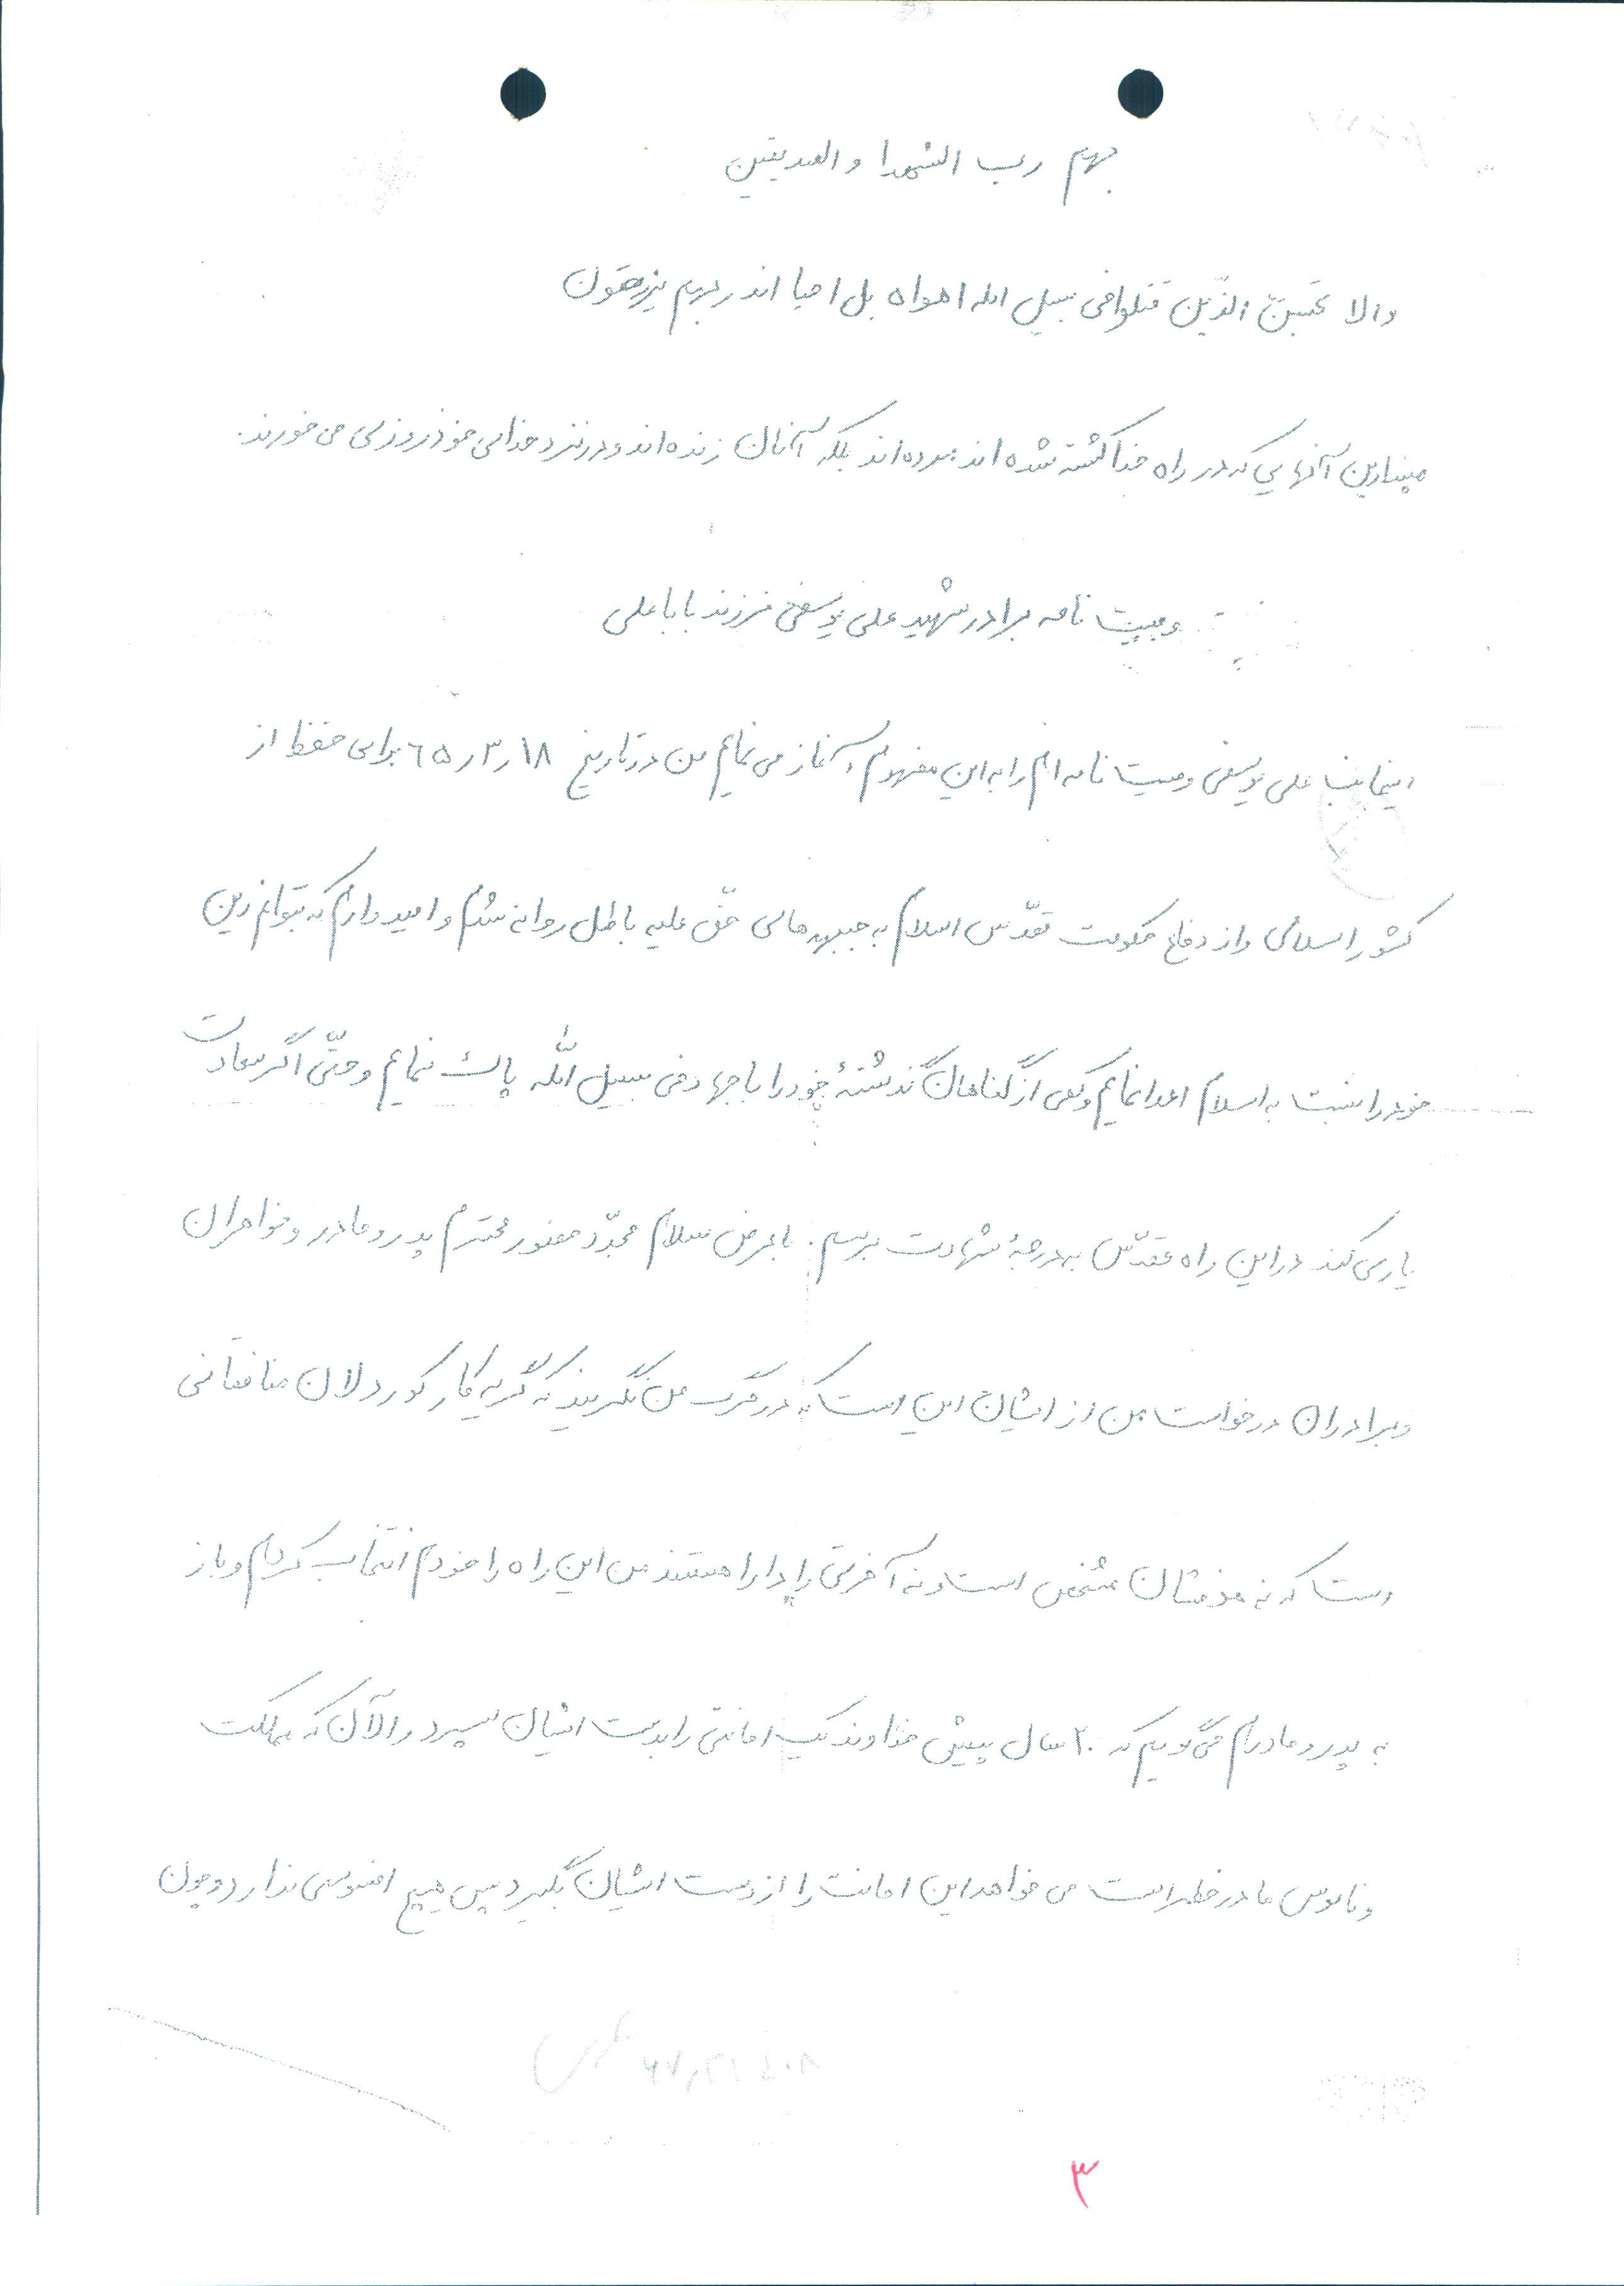 بهم رب الشهدا و الصدیقین
والا تحسبن الذّین قتلوا فی سبیل الله امواه بل احیا اند ربهم یزرقون
مپندارین آنهایی که در راه خدا کشته شده اند مرده اند بلکه آنان زنده اند و در نزد خدای خود روزی می خورند.
وصیت نامه برادر شهید علی یوسفی فرزند بابا علی
اینجانب علی یوسفی وصیت نامه ام را به این مفهوم آغاز می نمایم من در تاریخ ۱۸ر۳ر۶۵ برای حفظ از
کشور اسلامی و از دفاع حکومت تقدّس اسلام به جبهه های حقّ علیه باطل روانه شدم و امیدوارم که بتوانم دین
خود را نسبت به اسلام اعدا نمایم و کمی از گناهان گذشتهٔ خود را با جهاد فی سبیل الله پاک نمایم و حتّی اگر سعادت
یاری کند در این راه مقدّس به درجهٔ شهادت برسم. با عرض سلام مجدّد حضور محترم پدر و مادر و خواهران
و برادران درخواست من از ایشان این است که در مرگ من نگریید که گریه کار کوردلان منافقانی
است که نه هدفشان مشخص است و نه آخرتی را دارا هستند من این راه را خودم انتخاب کردم و باز
به پدر و مادرم می گویم که ۲۰ سال پیش خداوند یک امانتی را بدست ایشان سپرد و الآن که مملکت
و ناموس ما در خطر است می خواهد این امانت را از دست ایشان بگیرد پس هیچ افسوسی ندارد و چون
۳